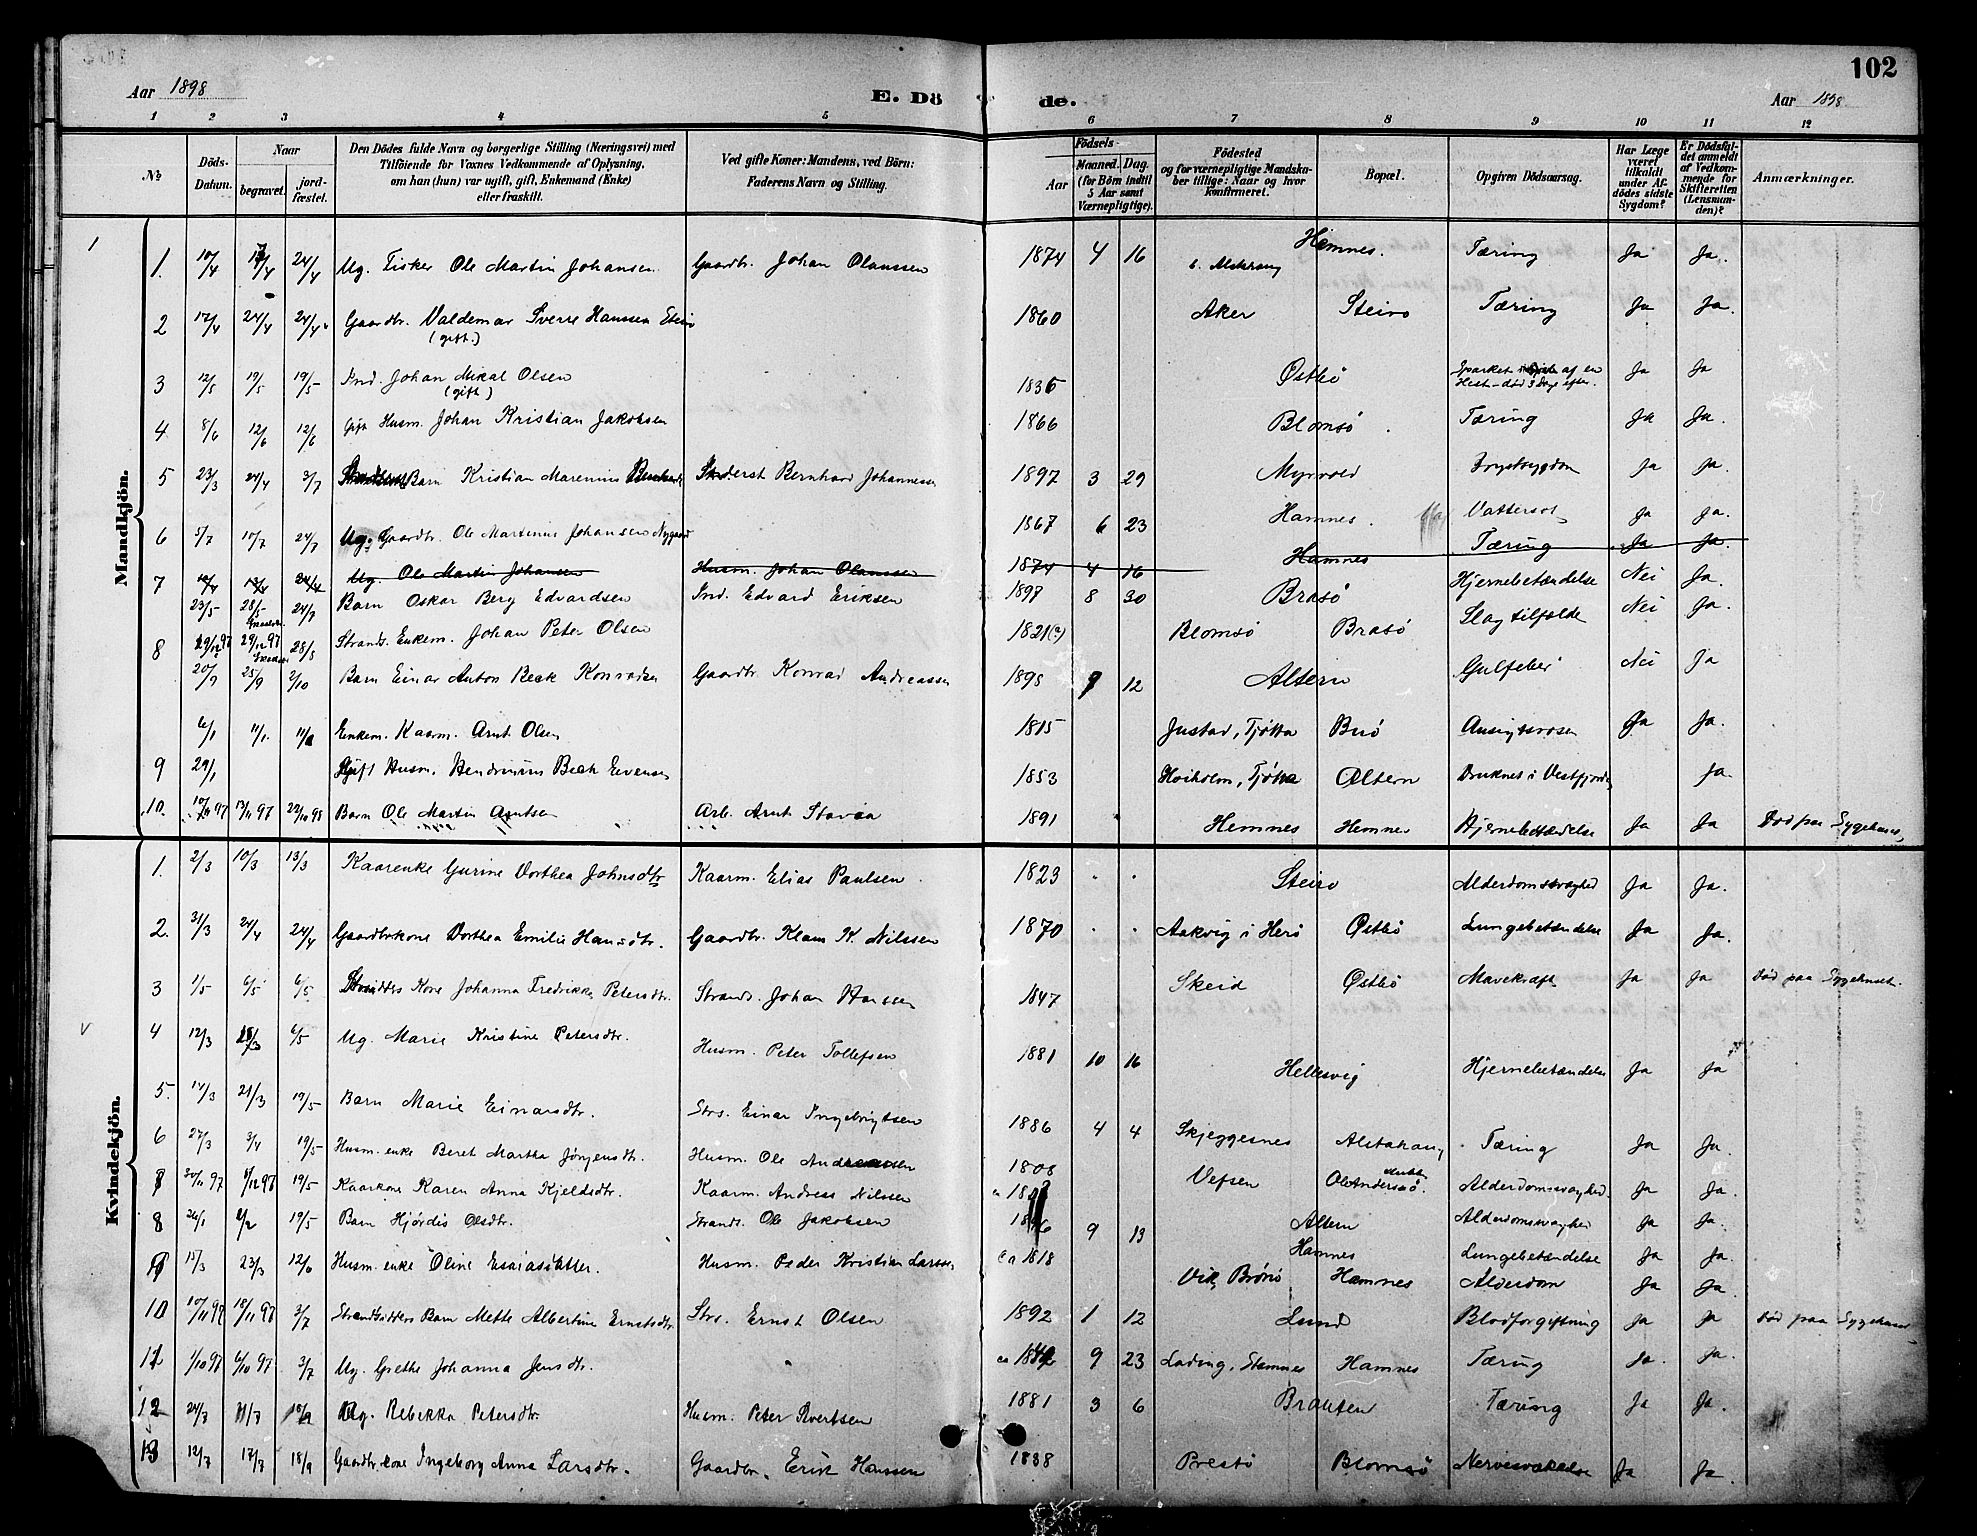 102
Aar 1898
E. Dö
de.
Aar 1898
1 2 3 4 5 6 7 8 9 10 11 12
No
Döds-Datum.
Naar
begravet.
jordfæstet.
Den Dödes fulde Navn og borgerlige Stilling (Næringsvei) med
Tilföiende for Voxnes Vedkommende af Oplysning,
om han (hun) var ugift, gift, Enkemand (Enke)
eller fraskilt.
Ved gifte Koner: Mandens, ved Börn:
Faderens Navn og Stilling.
Födsels-
Aar
Maaned. Dag.
(for Börn indtil
5 Aar samt
Værnepligtige).
Födested
og for værnepligtige Mandska-
ber tillige: Naar og hvor
konfirmeret.
Bopæl.
Opgiven Dödsaarsag.
Har Læge
været
tilkaldt
under Af-
dödes sidste
Sygdom?
Er Dödsfal-
det anmeldt
af Vedkom-
mende for
Skifteretten
(Lensman-
den)?
Anmærkninger.
Mandkjön.
1. 10/4 17/4 24/4 Ug. Fisker Ole Martin Johansen Gaardbr. Johan Olaussen 1874 4 16 Hemnes. Tæring Ja Ja.
2 17/4 24/4 24/4 Gaardbr. Valdemar Sverre Hanssen Steiro 1860 Aker Steiro Tæring Ja Ja.
(gift.)
3 12/5 19/5 19/5 Ind. Johan Mikal Olsen 1836 Østbö Sparket af en Ja Ja
(gift) Hest - död 3 Dage efter.
4 8/6 12/6 12/6 Gift Husm. Johan Kristian Jakobsen 1866 Blomsö. Tæring Ja Ja.
5 23/3 24/4 3/7 Barn Kristian Marenius Bernhard Johannesen 1897 3 29 Myrvold Brystsygdom Ja Ja.
6 5/7 10/7 24/7 Ug. Gaardbr. Ole Martinus Johansen Nygaard 1867 6 23 Hamnes. Vattersot Ja Ja.
7 10/4 24/4 Ug. Ole Martin Johansen Husm. Johan Olaussen 1874 4 16 Hamnes Tæring Ja Ja.
23/5 28/5 24/7 Barn Oskar Berg Edvardsen Ind. Edvard Eriksen 1897 8 30 Brasö Hjernebetændelse Nei Ja.
8 29/12 97 29/12 97 28/8 Strands. Enkem. Johan Peter Olsen 1821(?) Blomsö Brasö Slagtilfælde Nei Ja.
20/9 25/9 2/10 Barn Einar Anton Beck Konradsen Gaardbr. Konrad Andreassen 1898 12 Altern Gulfeber Nei Ja
6/1 11/1. Enkem. Kaarm. Arnt Olsen 1815 Justad, Tjøtta Buö Ansigtsrosen Ja Ja.
9 29/1 Gift Husm. Hendrinius Beck Evensen 1853 Høiholm, Tjøtta Altern Druknet i Vestfjorden Ja.
10. 13/11 97 22/10 98 Barn Ole Martin Arntsen Arb. Arnt Stavaa 1891 Hemnes Hemnes Hjernebetændelse Ja Ja Død paa Sygehuset,
Kvindekjön.
1. 2/3 10/3 13/3 Kaarenke Gurine Dorthea Johnsdtr Kaarm. Elias Paulsen 1823 Steiro Alderdomssvaghed Ja Ja.
2. 31/3 24/4 24/4 Gaardbrkone Dorthea Emilie Hansdtr. Gaardbr. Klaus K. Nilssen 1870 Aakvig i Herö Østbö Lungebetændelse Ja Ja.
3 1/5 6/5 6/5 Kone Johanna Fredrikke Petersdtr. Strands. Johan Hansen 1847 Skeid Østbö Mavekræft Ja Ja Död paa Sygehuset.
4 12/3 6/5 Ug. Marie Kristine Petersdtr. Husm. Peter Tollefsen 1881 10 16 Hellesvig Hjernebetændelse Ja Ja
5. 14/3 21/3 19/5 Barn Marie Einarsdtr. Strs. Einar Ingebrigtsen 1886 4 4 Skjeggesnes Alstahaug Tæring Ja Ja.
6 27/3 3/4 19/5 Husm. enke Beret Martha Jörgensdtr. Husm. Ole Andreassen 1808 Vefsen Alderdomssvaghed Ja Ja.
30/11 97 19/5 Kaarkone Karen Anna Kjeldsdtr. Kaarm. Andreas Nilssen Alderdomssvaghed Ja Ja.
8 26/1 19/5 Barn Hjördis Olsdtr. Strands. Ole Jakobsen 9 13 Altern Lungebetændelse Ja Ja.
15/3 23/3 12/6 Husm. enke Oline Esaiasdatter. Husm. Peder Kristian Larssen Ca 1818 Vik, Brönö Hamnes Alderdom Ja Ja
10 10/11 97 18/11 97 3/7 Strandsidders Barn Mette Albertine Ernstsdtr. Strs. Ernst Olsen 1892 1 12 Lund Blodforgiftning Ja Ja Död paa Sygehuset
11 1/10 97 6/10 97 3/7 Ug. Grethe Johanna Jensdtr. 9 23 Hamnes Tæring Ja. Ja.
12 Ug. Rebekka Petersdtr. Husm. Peter Sivertsen 1881 3 6 Brauten Tæring Ja Ja.
13 12/7 17/7 18/9 Gaardbr. kone Ingeborg Anna Larsdtr. Gaardbr. Erik Hanssen 1838 Prestö Blomsö Nervesvækkelse Ja Ja.